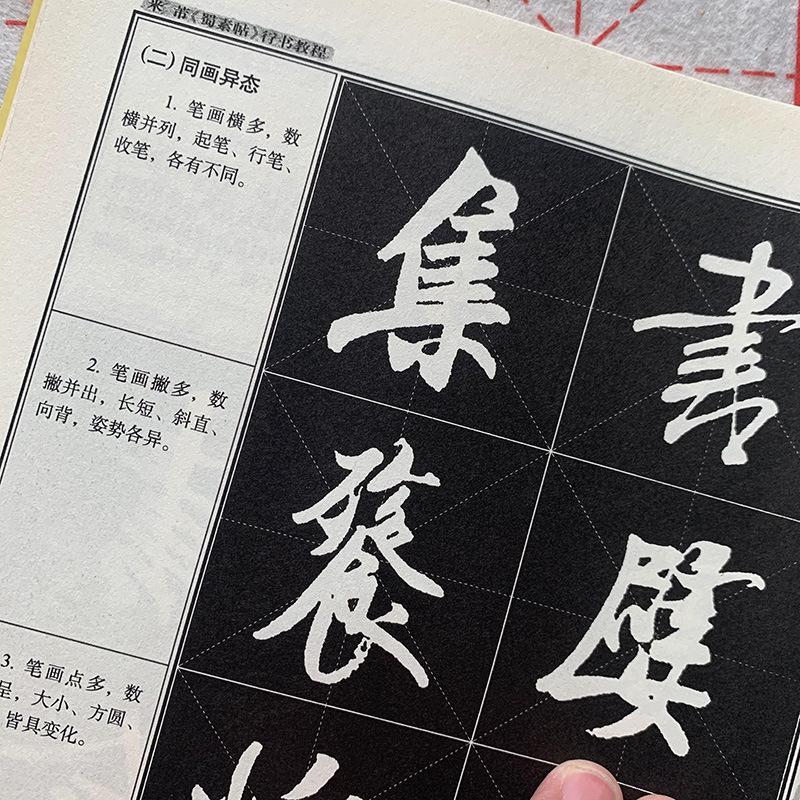 米 芾《蜀素帖》行书教程
(二) 同画异态
1. 笔画横多，数
横并列，起笔、行笔、
收笔，各有不同。
集
2. 笔画撇多，数
撇并出，长短、斜直、
向背，姿势各异。
餐
3. 笔画点多，数
呈，大小、方圆、
皆具变化。